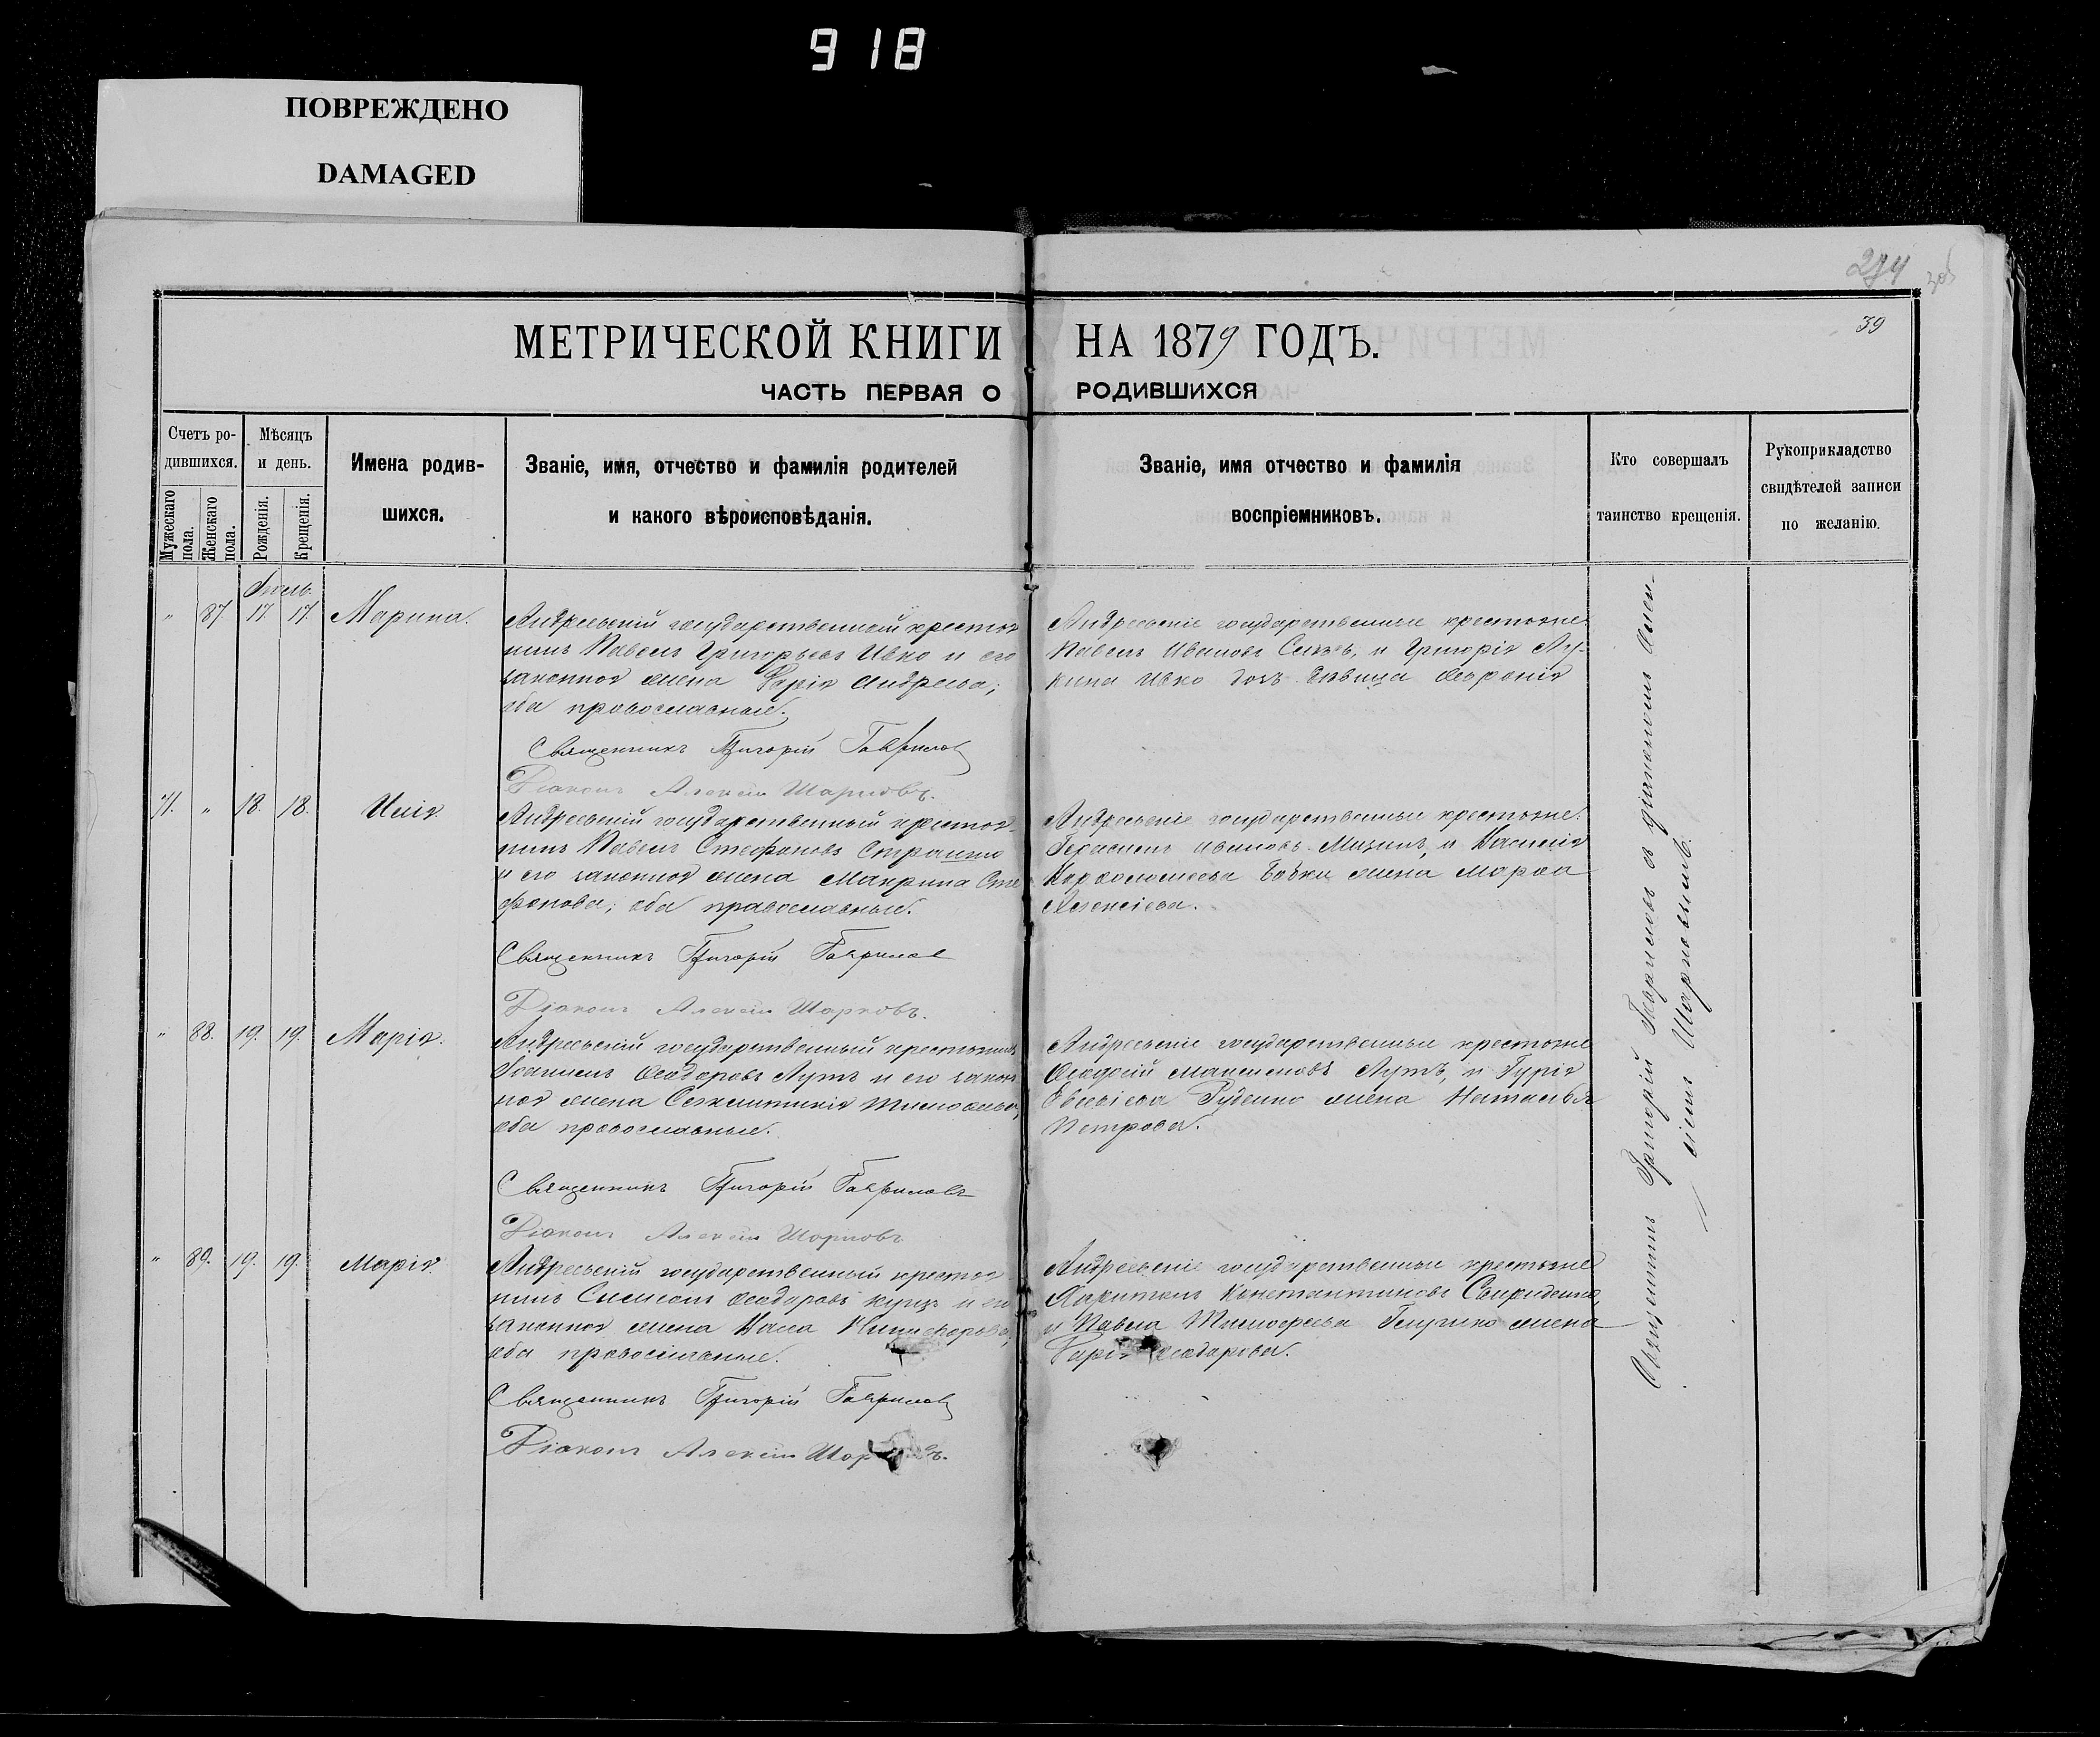 918
ПОВРЕЖДЕНО
DAMAGED
274
39
МЕТРИЧЕСКОЙ КНИГИ НА 1879 ГОДЪ.
ЧАСТЬ ПЕРВАЯ О РОДИВШИХСЯ
Счетъ родившихся.
Мужескаго пола.
Женскаго пола.
Мѣсяцъ и день.
Рожденія.
Крещенія.
Имена родив-
шихся.
Званіе, имя, отчество и фамилія родителей
и какого вѣроисповѣданія.
Званіе, имя отчество и фамилія
воспріемниковъ.
Кто совершалъ
таинство крещенія.
Рукоприкладство
свидѣтелей записи
по желанію.
Іюль.
" 87. 17. 17. Марина.
Андреевскій государственный крестья
нинъ Павелъ Григорьевъ Ивко и его
законная жена Дарія Андреева;
оба православные.
Священникъ Григорій Гаврилов
Діаконъ Алексій Шарковъ.
Андреевскіе государственные крестьяне
Павелъ Ивановъ и Григорія Лу-
кина Ивко дочь дѣвица Февронія
71. " 18. 18. Илія.
Андреевскій государственный крестья-
нинъ Павелъ Стефановъ Страшко
и его законная жена Макрина Сте
фанова; оба православные.
Священникъ Григорій Гаврилов
Діаконъ Алексій Шарковъ.
Андреевскіе государственные крестьяне.
Герасимъ Ивановъ Мизинъ, и Василія
Варѳоломеева Бабки жена Марѳа
Алексіева.
" 88. 19. 19. Марія.
Андреевскій государственный крестьянинъ
Іоаннъ Ѳеодоровъ Лутъ и его закон
ная жена Тимоѳеева,
оба православные.
Священникъ Григорій Гавриловъ
Діаконъ Алексій Шарковъ
Андреевскіе государственные крестьяне
Ѳеодосій Максимовъ Лутъ, и Гурія
Евсевіева Руденко жена Наталья
Петрова.
" 89. 19. 19. Марія.
Андреевскій государственный крестья
нинъ Симеонъ Ѳеодоровъ Куцъ и его
законная жена Васса Никифорова,
оба православные.
Священникъ Григорій Гаврилов
Діаконъ Алексій
Андреевскіе государственные крестьяне
Харитонъ Константиновъ Свириденко,
и Павла Тимоѳеева жена
Дарія Ѳеодорова.
Священникъ Григорій Гавриловъ съ діакономъ Алек-
сіемъ Шарковымъ.